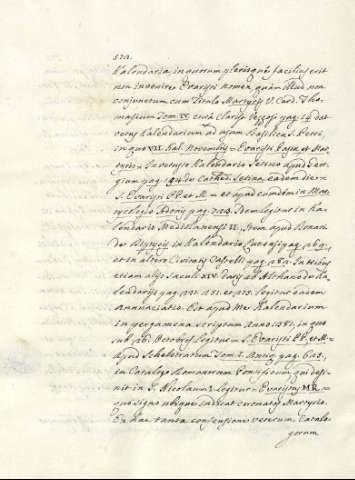 570.
Kalendaria, in quorum plerisque facilius erit
non invenire Evaristi nomen, quam illud non
conjunctum cum Titulo Martyris V. Card. Tho-
masium Tom. IV. curâ Clariss. Vezzosi pag. 14 det
vetus Kalendarium ad usum Basilicae Petri,
in quo VII. Kal. Novembr. = Evaristi Papae et Mar-
tyris = Inventis Kalendario Setino apud
pag. 194 de Cathed. Setina, eadem die =
S. Evaristi PP. et M. = et apud eumdem in Mar-
tyrologio Adonis pag. 223. Item legitur in Ka-
lendario Mediolanensi II. Item apud
in Kalendario pag. 269.
et in altero Civitatis Castelli pag. 282. In
etiam aliis Saeculi XIV. ab de Ka-
lendariis pag. 121. 151. et 175. legitur eadem
Annunciatio. Est apud Me Kalendarium
in pergamena scriptum Anno 1381, in quo
sub 26. Octobris legitur = S. Evaristi PP. et M.
Apud Schelestratium Tom. I. Antiq. pag. 645.
in Catalogo Romanorum Pontificum qui desi-
nit in S. Nicolaum I. legitur = Evaristus MR =
quo signo ubique indicat Martyria.
Ex hac tanta consensione veterum Catalo-
gorum